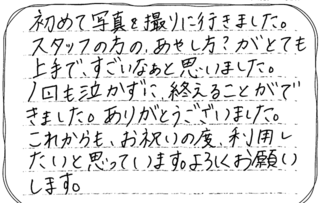 初めて写真を撮りに行きました。
スタッフの方の、あやし方?がとても
上手で、すごいなぁと思いました。
1回も泣かずに、終えることがで
きました。ありがとうございました。
これからも、お祝いの度、利用し
たいと思っています。よろしくお願い
します。